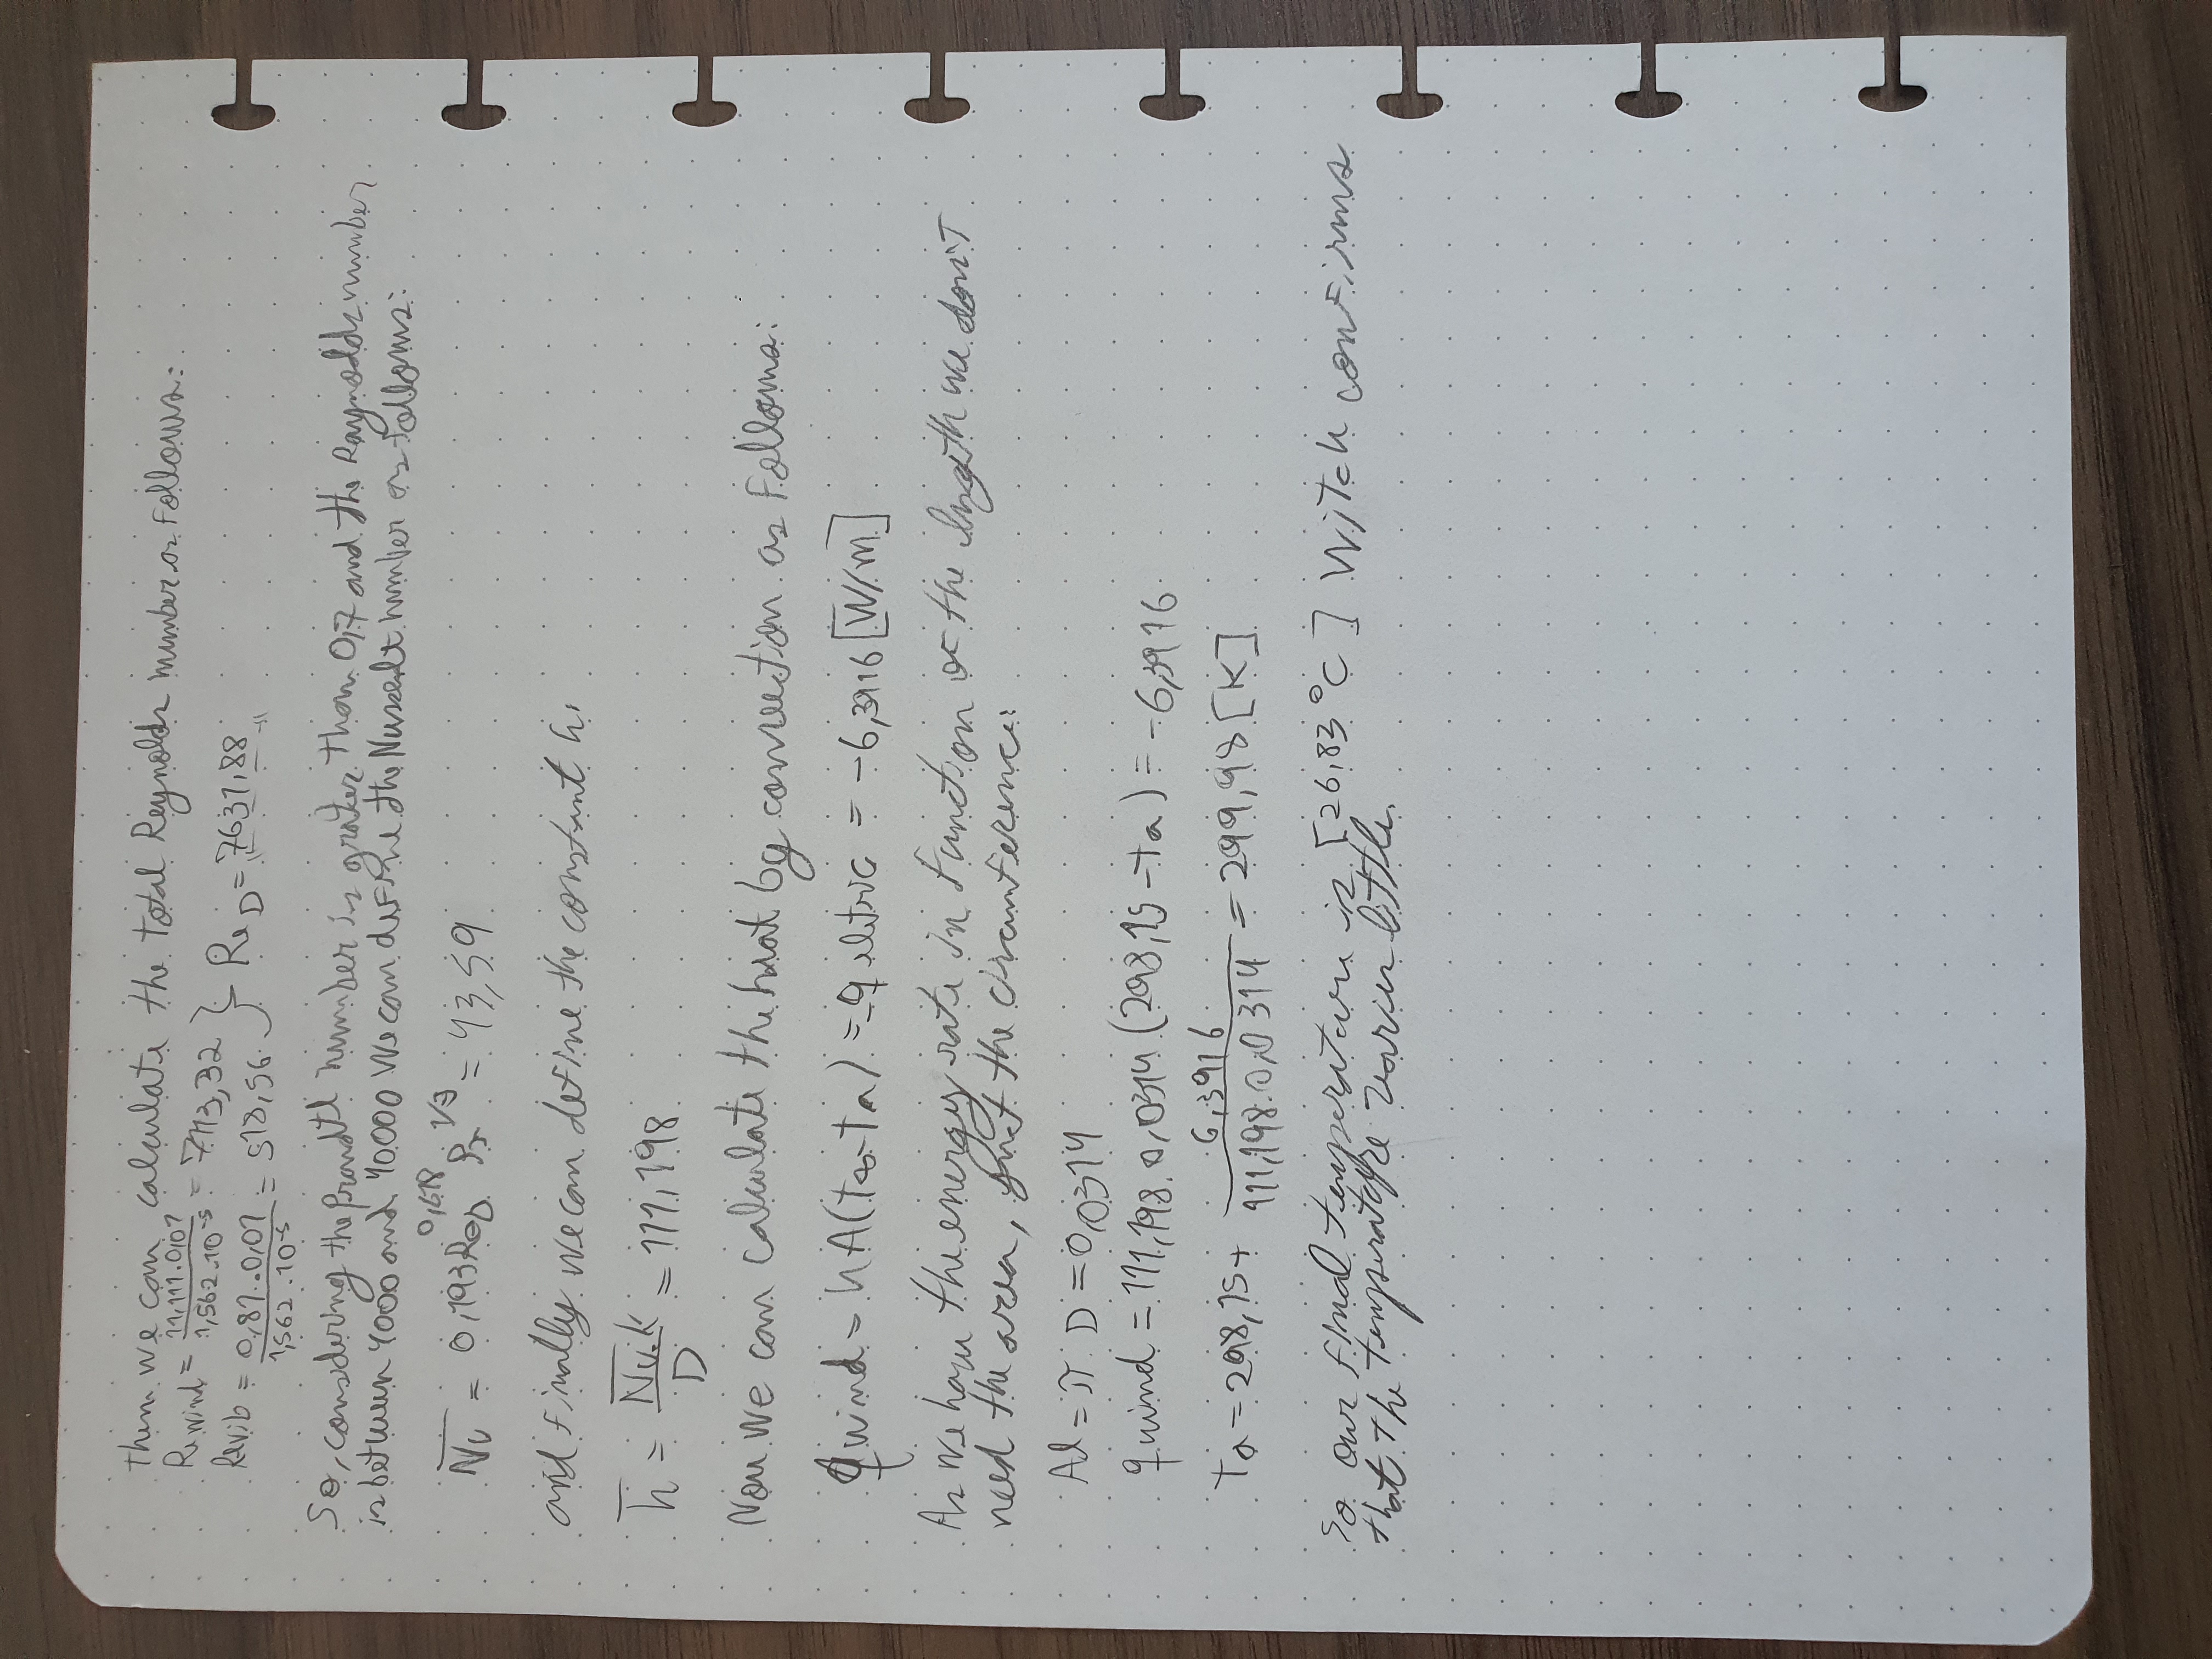 Then we can calculate the total Reynolds number as Follows:
Rewind = 11,111.0,01 / 1,562.10^-5 = 7113,32
Revib = 0,81.0,01 / 1,562.10^-5 = 518,56 } Re_D = 7631,88
So, considering the Prandtl number is grater than 0,7 and the Raynolds number
is between 4000 and 40000 We can define the Nusselt number as Follows:
N̅u̅ = 0,193 Re_D^0,618 Pr^1/3 = 43,59
and finally we can define the constant h:
h̅ = N̅u̅.k / D = 111,198
Now We can calculate the heat by convection as Follows:
q wind = hA(T∞-Ta) = -q eltric = -6,3916 [W/m]
As We have the energy rate in function of the length we don't
need the area, just the circumference:
Al = π D = 0,0314
q wind = 111,198.0,0314 (298,15-Ta) = -6,3916
Ta = 298,15 + 6,3916 / 111,198.0,0314 = 299,98 [K]
So our final temperature is [26,83 °C] Witch confirms
that the temperature varies little.